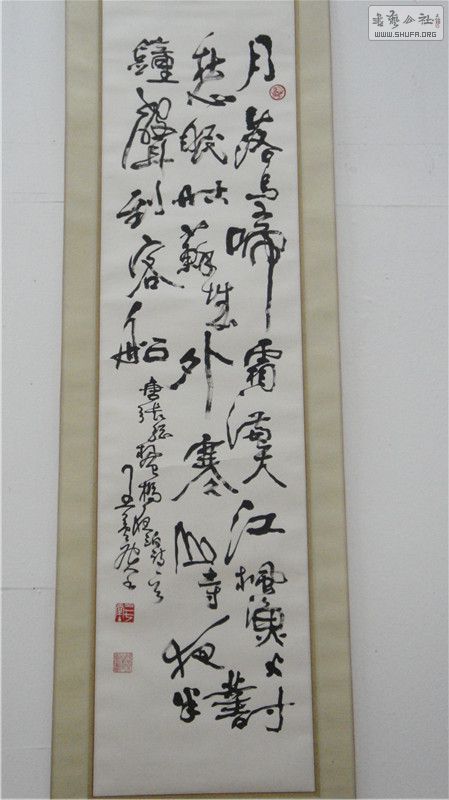 月落烏啼霜滿天江楓漁火對
愁眠姑蘇城外寒山寺夜半
鐘聲到客船
唐張繼楓橋夜泊詩一首
書藝公社
WWW.SHUFA.ORG